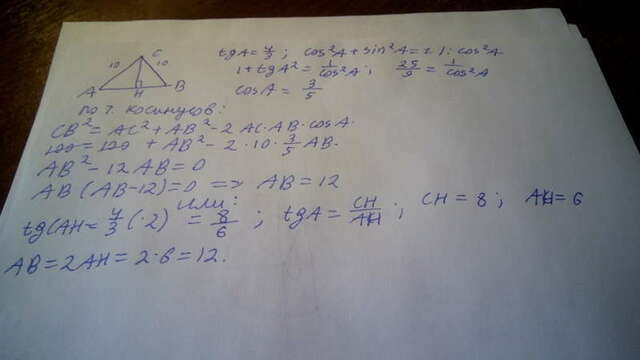 C
10 10
A H B
tgA = 4/3 ; cos²A + sin²A = 1 | : cos²A
1 + tgA² = 1/cos²A ; 25/9 = 1/cos²A
cosA = 3/5
По т. косинусов:
CB² = AC² + AB² - 2 AC·AB·cosA.
100 = 100 + AB² - 2·10·3/5 AB.
AB² - 12 AB = 0
AB (AB-12) = 0 => AB = 12
или:
tgCAH = 4/3 (·2) = 8/6 ; tgA = CH/AH ; CH = 8 ; AH = 6
AB = 2AH = 2·6 = 12.